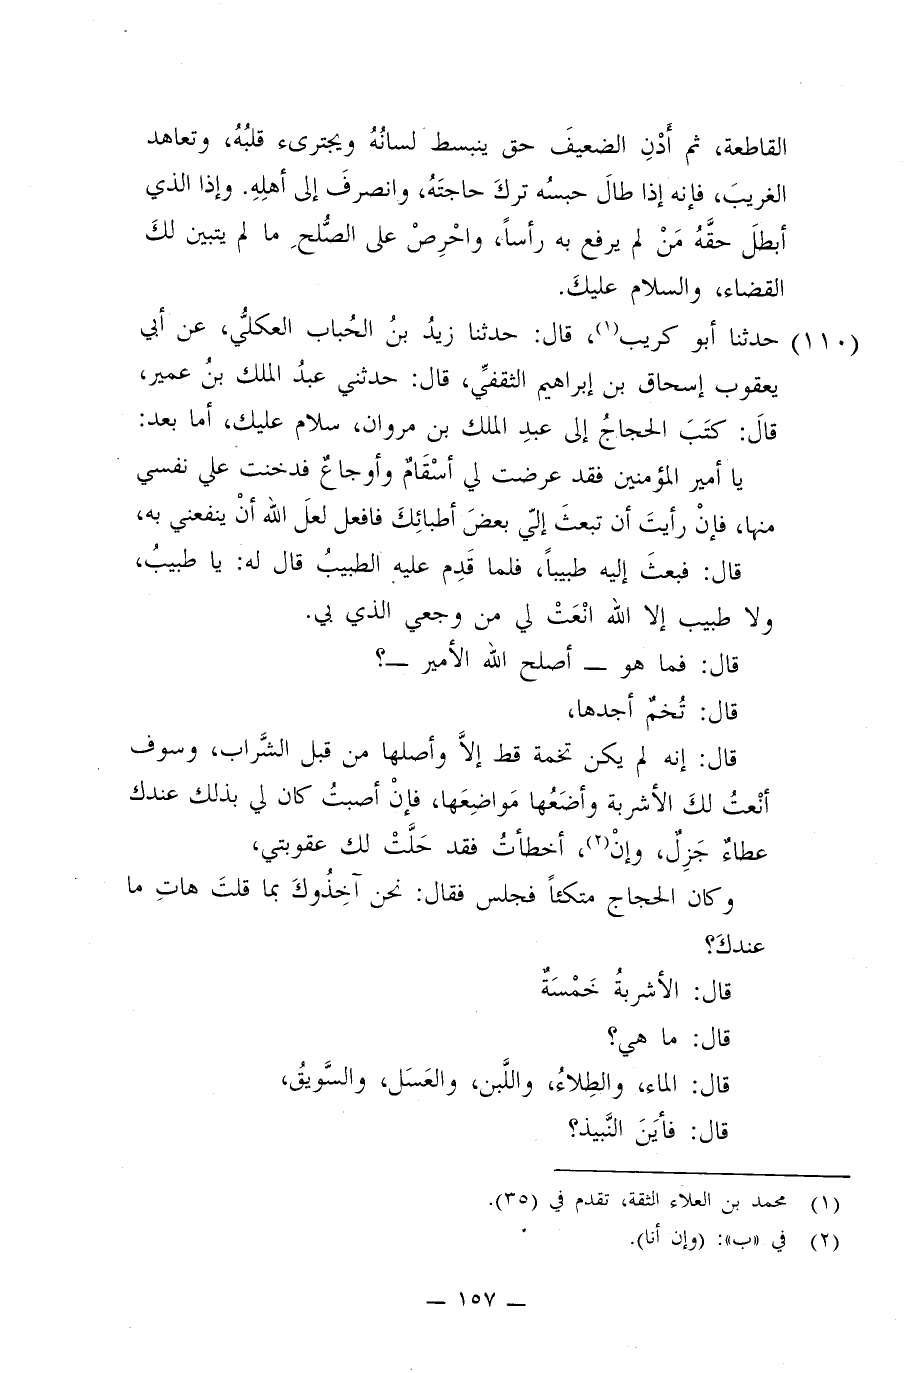 القاطعة، ثم أَدْنِ الضعيفَ حق ينبسط لسانُهُ ويجترىء قلبُهُ، وتعاهد
الغريبَ، فإنه إذا طالَ حبسُه تركَ حاجتَهُ، وانصرفَ إلى أهلِهِ. وإذا الذي
أبطلَ حقَّهُ مَنْ لم يرفع به رأساً، واحْرِصْ على الصُّلحِ ما لم يتبين لكَ
القضاء، والسلام عليكَ.
(١١٠) حدثنا أبو كريب(١)، قال: حدثنا زيدُ بنُ الحُباب العكليُّ، عن أبي
يعقوب إسحاق بن إبراهيم الثقفيِّ، قال: حدثني عبدُ الملك بنُ عمير،
قالَ: كتَبَ الحجاجُ إلى عبدِ الملك بن مروان، سلام عليك، أما بعد:
يا أمير المؤمنين فقد عرضت لي أسْقَامٌ وأوجاعٌ فدخنت علي نفسي
منها، فإنْ رأيتَ أن تبعثَ إليّ بعضَ أطبائِكَ فافعل لعلَ الله أنْ ينفعني به،
قال: فبعثَ إليه طبيباً، فلما قَدِم عليه الطبيبُ قال له: يا طبيبُ،
ولا طبيب إلا الله انْعَتْ لي من وجعي الذي بي.
قال: فما هو ــ أصلح الله الأمير ــ؟
قال: تُخمٌ أجدها،
قال: إنه لم يكن تخمة قط إلاَّ وأصلها من قبل الشَّراب، وسوف
أنْعتُ لكَ الأشربة وأضَعُها مَواضِعَها، فإنْ أصبتُ كان لي بذلك عندك
عطاءٌ جَزِلٌ، وإنْ(٢)، أخطأتُ فقد حَلَّتْ لك عقوبتي،
وكان الحجاج متكئاً فجلس فقال: نحن آخِذُوكَ بما قلتَ هاتِ ما
عندكَ؟
قال: الأشربةُ خَمْسَةٌ
قال: ما هي؟
قال: الماء، والطِلاءُ، واللَّبن، والعَسَل، والسَّويقُ،
قال: فأينَ النَّبيذ؟
(١) محمد بن العلاء الثقة، تقدم في (٣٥).
(٢) في «ب»: (وإن أنا).
ــ ١٥٧ ــ